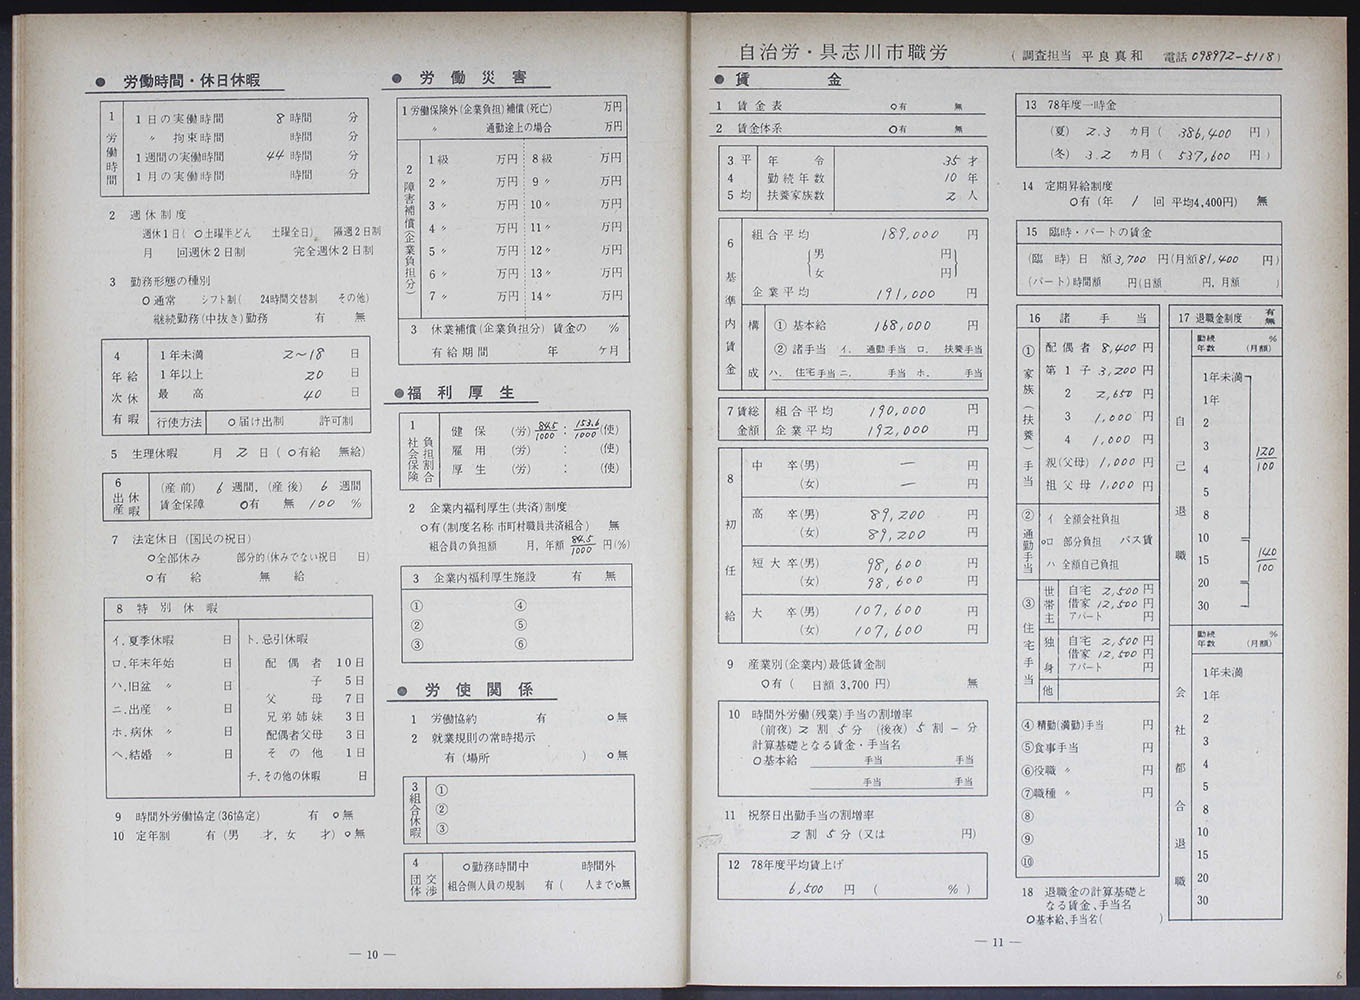 ● 労働時間・休日休暇
1 労働時間
1日の実働時間 8時間 分
〃 拘束時間 時間 分
1週間の実働時間 44時間 分
1月の実働時間 時間 分
2 週休制度
週休1日( ○土曜半どん 土曜全日)、隔週2日制
月 回週休2日制 完全週休2日制
3 勤務形態の種別
○通常 シフト制( 24時間交替制 その他)
継続勤務(中抜き)勤務 有 無
4 年次有給休暇
1年未満 2~18 日
1年以上 20 日
最高 40 日
行使方法 ○届け出制 許可制
5 生理休暇 月 2 日 ( ○有給 無給)
6 出産休暇
(産前) 6 週間, (産後) 6 週間
賃金保障 ○有 無 100 %
7 法定休日 (国民の祝日)
○全部休み 部分的(休みでない祝日 日)
○有給 無給
8 特別休暇
イ.夏季休暇 日
ロ.年末年始 日
ハ.旧盆 〃 日
ニ.出産 〃 日
ホ.病休 〃 日
ヘ.結婚 〃 日
ト.忌引休暇
配偶者 10日
子 5日
父母 7日
兄弟姉妹 3日
配偶者父母 3日
その他 1日
チ.その他の休暇 日
9 時間外労働協定(36協定) 有 ○無
10 定年制 有 (男 才, 女 才) ○無
● 労働災害
1 労働保険外(企業負担)補償(死亡) 万円
〃 通勤途上の場合 万円
2 障害補償(企業負担分)
1級 万円 8級 万円
2〃 万円 9〃 万円
3〃 万円 10〃 万円
4〃 万円 11〃 万円
5〃 万円 12〃 万円
6〃 万円 13〃 万円
7〃 万円 14〃 万円
3 休業補償(企業負担分) 賃金の %
有給期間 年 ヶ月
●福利厚生
1 社会保険負担割合
健保 (労) 84.5/1000 : 153.6/1000 (使)
雇用 (労) : (使)
厚生 (労) : (使)
2 企業内福利厚生(共済)制度
○有(制度名称 市町村職員共済組合) 無
組合員の負担額 月, 年額 84.5/1000 円(%)
3 企業内福利厚生施設 有 無
① ④
② ⑤
③ ⑥
● 労使関係
1 労働協約 有 ○無
2 就業規則の常時掲示
有 (場所 ) ○無
3 組合休暇
①
②
③
4 団体交渉
○勤務時間中 時間外
組合側人員の規制 有 ( 人まで)○無
— 10 —
自治労・具志川市職労 (調査担当 平良真和 電話 098972-5118)
● 賃金
1 賃金表 ○有 無
2 賃金体系 ○有 無
3 平均年令 35 才
4 勤続年数 10 年
5 扶養家族数 2 人
6 基準内賃金
組合平均 189,000 円
男 円
女 円
企業平均 191,000 円
構成
① 基本給 168,000 円
② 諸手当 イ. 通勤手当 ロ. 扶養手当
ハ. 住宅手当 ニ. 手当 ホ. 手当
7 賃金総額
組合平均 190,000 円
企業平均 192,000 円
8 初任給
中卒(男) — 円
(女) — 円
高卒(男) 89,200 円
(女) 89,200 円
短大卒(男) 98,600 円
(女) 98,600 円
大卒(男) 107,600 円
(女) 107,600 円
9 産業別(企業内)最低賃金制
○有 ( 日額 3,700 円) 無
10 時間外労働(残業)手当の割増率
(前夜) 2 割 5 分 (後夜) 5 割 — 分
計算基礎となる賃金・手当名
○基本給 手当 手当
手当 手当
11 祝祭日出勤手当の割増率
2 割 5 分 (又は 円)
12 78年度平均賃上げ
6,500 円 ( %)
13 78年度一時金
(夏) 2.3 カ月 ( 386,400 円)
(冬) 3.2 カ月 ( 537,600 円)
14 定期昇給制度
○有(年 1 回 平均4,400円) 無
15 臨時・パートの賃金
(臨時) 日額 3,700 円(月額81,400 円)
(パート)時間額 円(日額 円, 月額 )
16 諸手当
①家族(扶養)手当
配偶者 8,400 円
第1子 3,200 円
2 2,650 円
3 1,000 円
4 1,000 円
親(父母) 1,000 円
祖父母 1,000 円
②通勤手当
イ 全額会社負担
○ロ 部分負担 バス賃
ハ 全額自己負担
③住宅手当
世帯主
自宅 2,500 円
借家 12,500 円
アパート 円
独身
自宅 2,500 円
借家 12,500 円
アパート 円
他
④精勤(満勤)手当 円
⑤食事手当 円
⑥役職 〃 円
⑦職種 〃 円
⑧
⑨
⑩
17 退職金制度 有 無
勤続年数 %(月額)
自己退職
1年未満
1年
2
3
4
5
8
10
15
20
30
120/100
140/100
勤続年数 %(月額)
会社都合退職
1年未満
1年
2
3
4
5
8
10
15
20
30
18 退職金の計算基礎と
なる賃金、手当名
○基本給、手当名( )
— 11 —
6